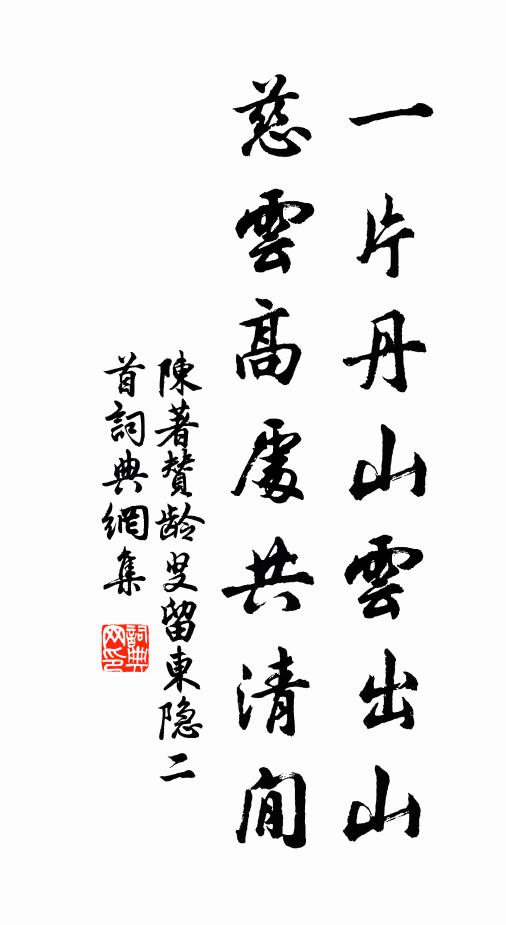 一片丹山雲出山
慈雲高處共清閒
陳著贊龄叟留東隐二
首詞典網集
詞典
网印